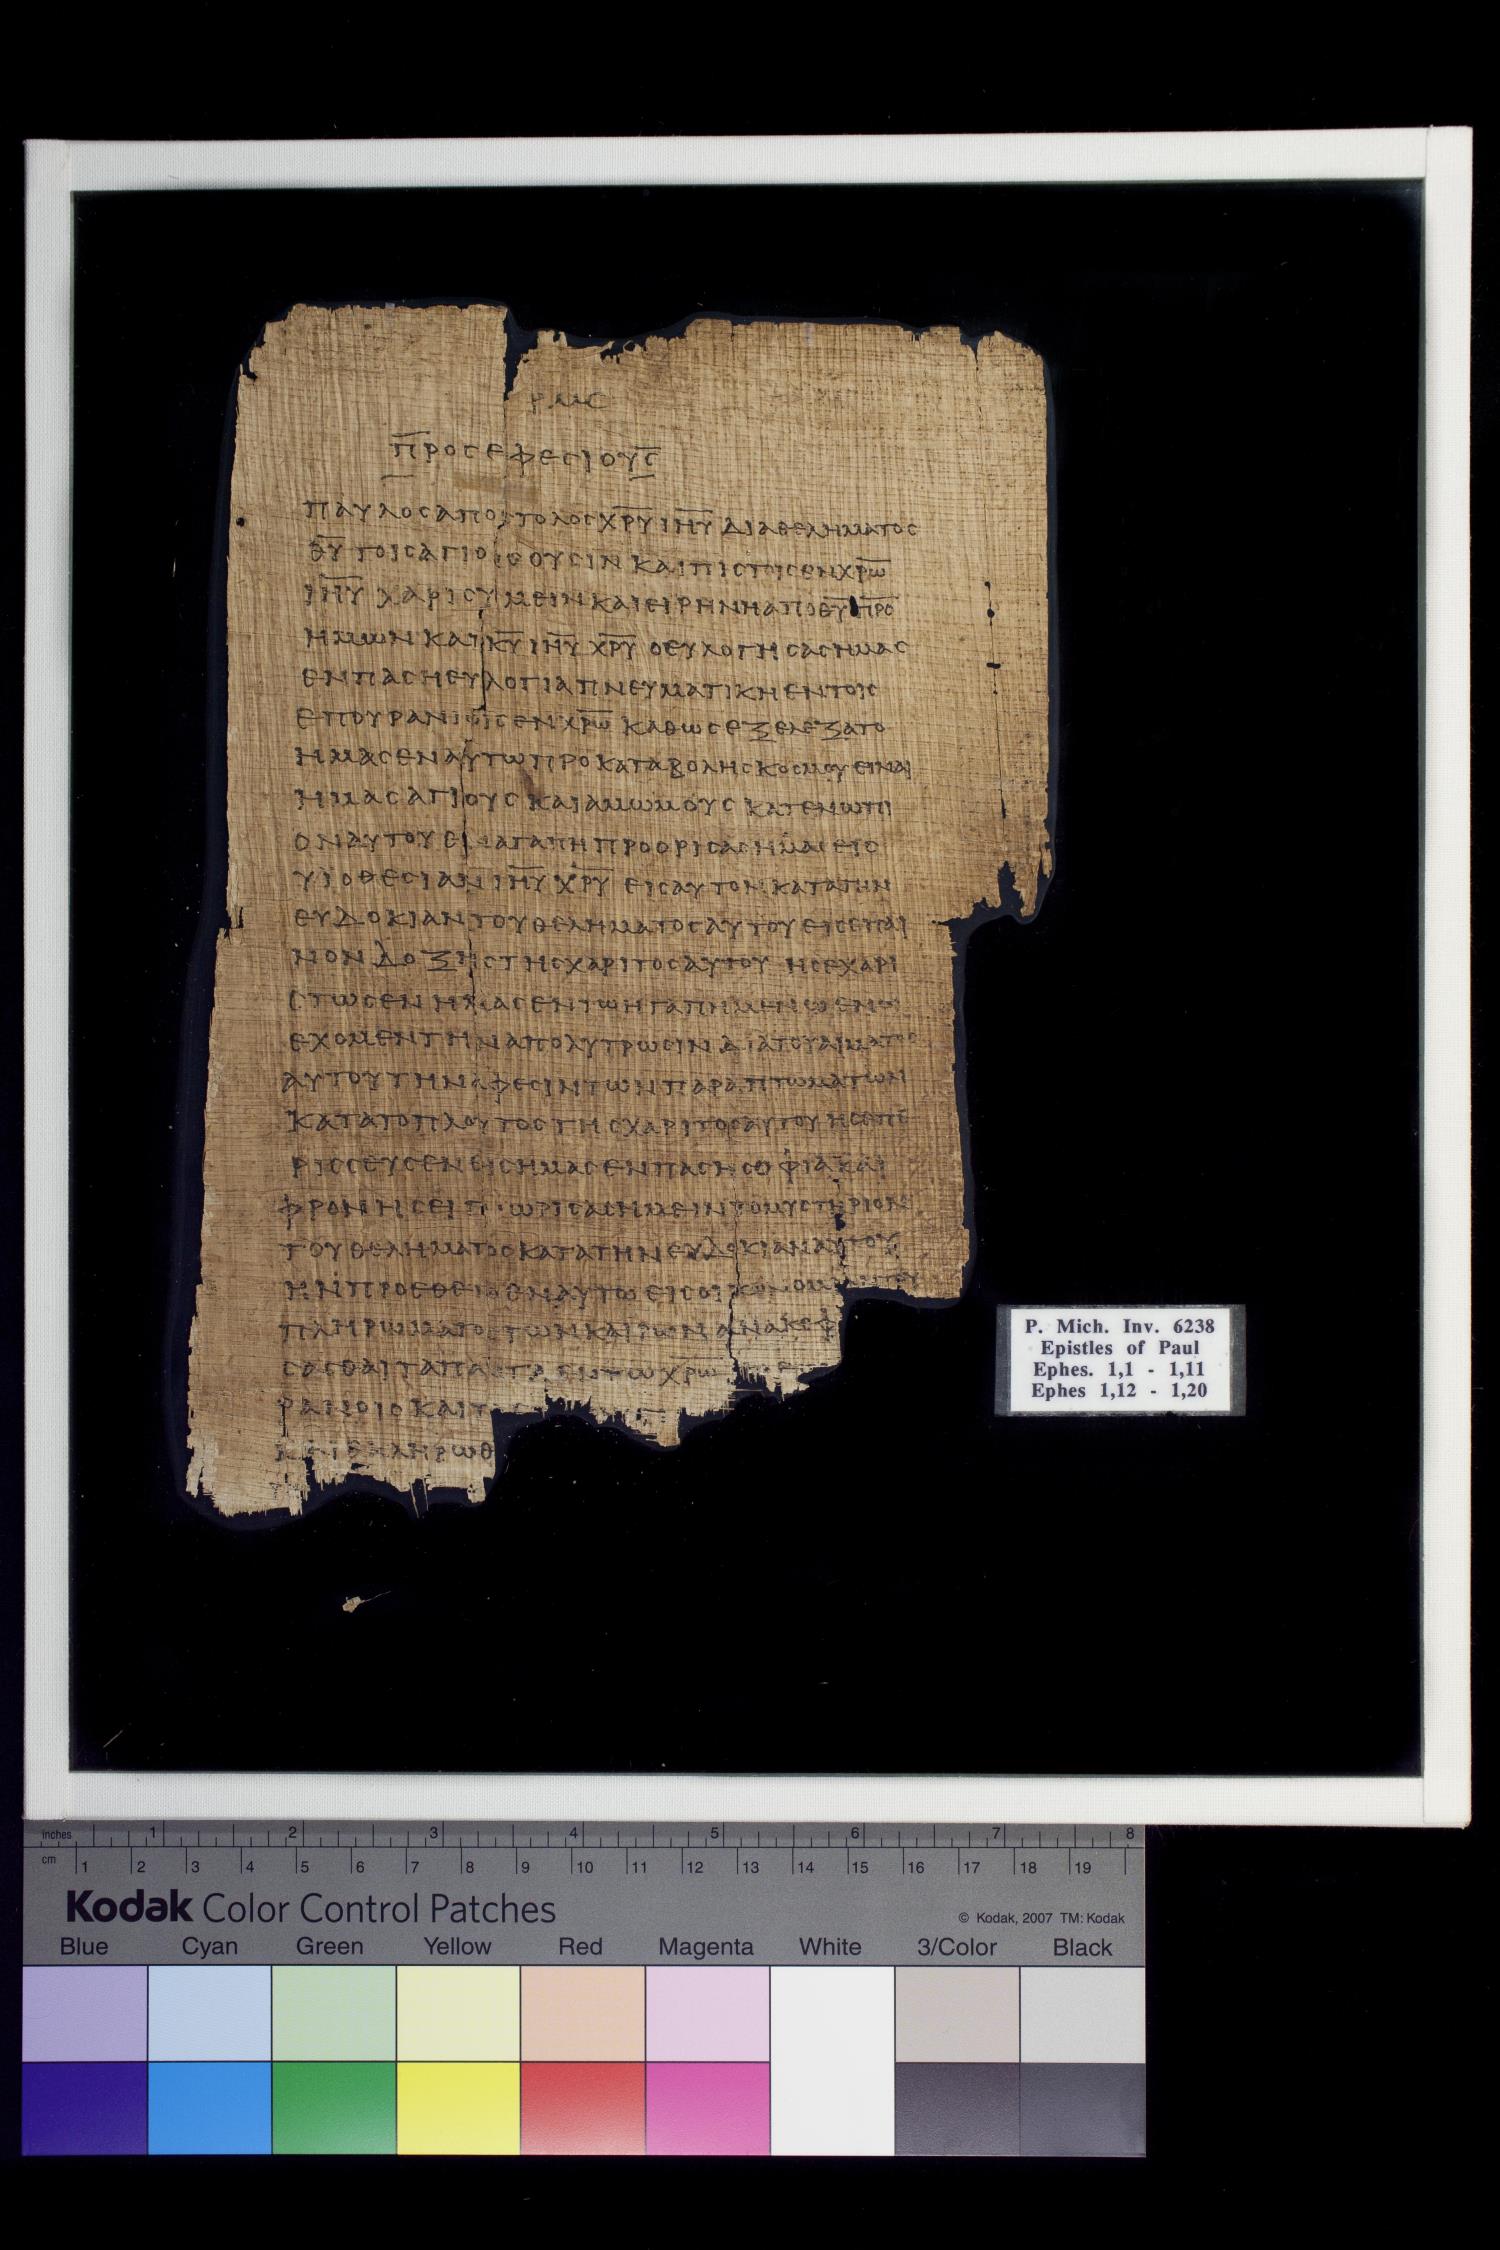 ρμϛ
π̅ροσεφεσιουσ̅
παυλοσαποστολοσχ̅ρ̅υ̅ι̅η̅υ̅διαθεληματοσ
θ̅υ̅τοισαγιοισουσινκαιπιστοισενχ̅ρ̅ω̅
ι̅η̅υ̅χαρισυμεινκαιειρηνηαποθ̅υ̅π̅ρ̅ο̅
ημωνκαικ̅υ̅ι̅η̅υ̅χ̅ρ̅υ̅οευλογησασημασ
ενπασηευλογιαπνευματικηεντοισ
επουρανιοισενχ̅ρ̅ω̅καθωσεξελεξατο
ημασεναυτωπροκαταβοληςκοσμουειναι
ημασαγιουσκαιαμωμουσκατενωπι
οναυτουεναγαπηπροορισασημασεισ
υιοθεσιανι̅η̅υ̅χ̅ρ̅υ̅εισαυτονκατατην
ευδοκιαντουθεληματοσαυτουεισεπαι
νονδοξηστησχαριτοσαυτουησεχαρι
στωσενημασεντωηγαπημενωενω
εχομεντηναπολυτρωσινδιατουαιματοσ
αυτουτηναφεσιντωνπαραπτωματων
κατατοπλουτοστησχαριτοσαυτουησεπε
ρισσευσενεισημασενπασησοφιακαι
φρονησειωρισασημειντομυστηριον
τουθεληματοσκατατηνευδοκιαναυτου
ηνπροεθετοεναυτωεισοικονομιαντου
πληρωματοστωνκαιρωνανακεφ
σασθαιταπανταεντωχ̅ρ̅ω̅
ρανοισκαιτ
καιεκληρωθ
P. Mich. Inv. 6238
Epistles of Paul
Ephes. 1,1 - 1,11
Ephes 1,12 - 1,20
inches 1 2 3 4 5 6 7 8
cm 1 2 3 4 5 6 7 8 9 10 11 12 13 14 15 16 17 18 19
Kodak Color Control Patches
© Kodak, 2007 TM: Kodak
Blue Cyan Green Yellow Red Magenta White 3/Color Black